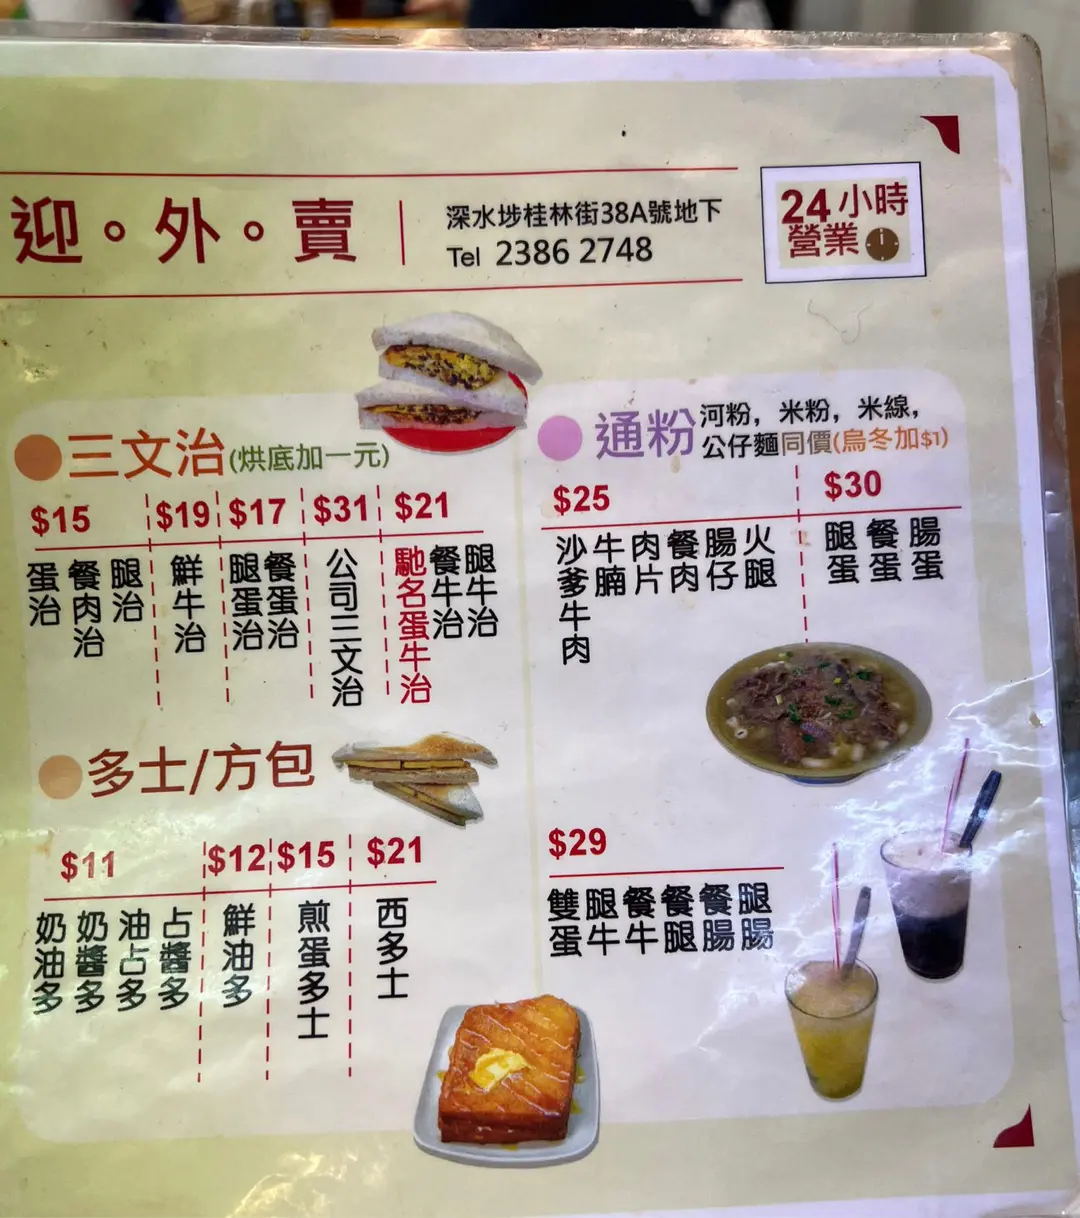 迎。外。賣
深水埗桂林街38A號地下
Tel 2386 2748
24小時
營業
三文治(烘底加一元)
$15
蛋治
餐肉治
腿治
$19
鮮牛治
$17
腿蛋治
餐蛋治
$31
公司三文治
$21
馳名蛋牛治
餐牛治
腿牛治
多士/方包
$11
奶油多
奶醬多
油占多
占醬多
$12
鮮油多
$15
煎蛋多士
$21
西多士
通粉 河粉，米粉，米線，
公仔麵同價(烏冬加$1)
$25
沙爹牛肉
牛腩
肉片
餐肉
腸仔
火腿
$30
腿蛋
餐蛋
腸蛋
$29
雙蛋
腿牛
餐牛
餐腿
餐腸
腿腸